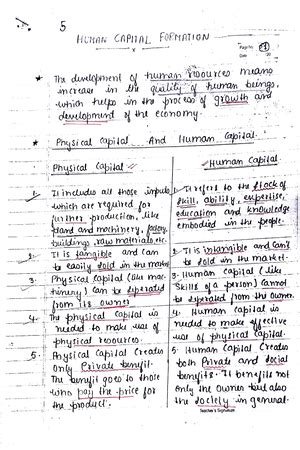 5
HUMAN CAPITAL FORMATION
Page No.
Date
* The development of human resources means
increase in the quality of human beings,
which helps in the process of growth and
development of the economy.
* Physical Capital And Human Capital.
Physical Capital
1. It includes all those inputs
which are required for
further production, like
pland and machinery, factory
buildings raw materials, etc.
2. It is tangible and can
be easily sold in the market
3. Physical Capital (like mac-
hinery) can be seperated
from its owner
4. The physical capital is
needed to make use of
physical resources.
5. Physical Capital Creates
only Private benefit.
The benefit goes to those
who pay the price for
the product.
Human Capital
1. It refers to the stock of
skill, ability, expertise,
education and knowledge
embodied in the people.
2. It is intangible and can't
be sold in the market.
3. Human Capital (like
Skills of a person) cannot
be seperated from the owner.
4. Human Capital is
needed to make effective
use of physical capital.
5. Human Capital Creates
both Private and social
benefits. It benefits not
only the owner but also
the society in general.
Teacher's Signature